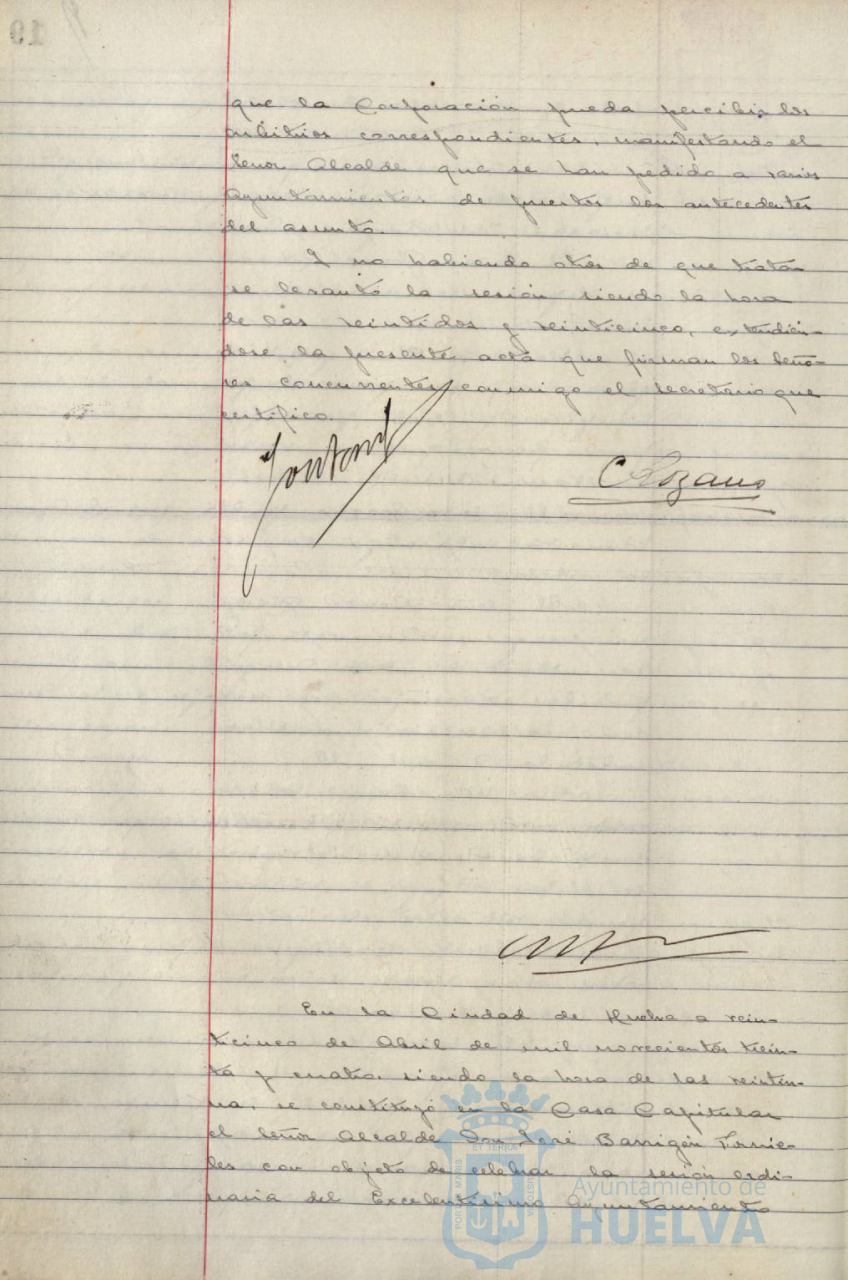 19
que la Corporación pueda percibir los
arbitrios correspondientes, manifestando el
Señor Alcalde que se han pedido a varios
Ayuntamientos de puertos los antecedentes
del asunto.
Y no habiendo otros de que tratar
se levantó la sesión siendo la hora
de las veintidos y veinticinco, extendién-
dose la presente acta que firman los Seño-
res concurrentes conmigo el Secretario que
certifico.
C Lozano
En la Ciudad de Huelva a vein-
ticinco de Abril de mil novecientos trein-
ta y cuatro, siendo la hora de las veintiu-
na, se constituyó en la Casa Capitular
el Señor Alcalde Don José Barrigón Fornie-
les con objeto de celebrar la sesión ordi-
naria del Excelentísimo Ayuntamiento
Ayuntamiento de
HUELVA